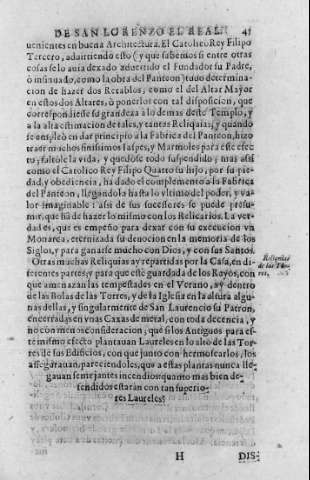 DE SAN LORENZO EL REAL. 45
uenientes en buena Architectura. El Catolico Rey Filipo
Tercero, aduirtiendo esto (y que sabemos si entre otras
cosas se lo auia dexado aduertido el Fundador su Padre,
ò insinuado, como la obra del Panteon) tuuo determina-
cion de hazer dos Retablos, como el del Altar Mayor
en estos dos Altares, ò ponerlos con tal disposicion, que
correspondiesse su grandeza a lo demas deste Templo, y
a la alta estimacion de tales, y tantas Reliquias, y quando
se empleò en dar principio a la Fabrica del Panteon, hizo
traer muchos finissimos Iaspes, y Marmoles para este efec-
to; faltòle la vida, y quedòse todo suspendido; mas assi
como el Catolico Rey Filipo Quarto su hijo, por su pie-
dad, y obediencia, ha dado el complemento a la Fabrica
del Panteon, llegandola hasta lo vltimo del poder, y va-
lor imaginable: assi de sus sucessores se puede presu-
mir, que hã de hazer lo mismo con los Relicarios. La ver-
dad es, que es empeño para dexar con su execucion vn
Monarca, eternizada su deuocion en la memoria de los
Siglos, y para ganarse mucho con Dios, y con sus Santos.
Otras muchas Reliquias ay repartidas por la Casa, en di-
ferentes partes, y para que estè guardada de los Rayos, con
que amenazan las tempestades en el Verano, ay dentro
de las Bolas de las Torres, y de la Iglesia en la altura algu-
nas dellas, y singularmente de San Laurencio su Patron,
encerradas en vnas Caxas de metal, con toda decencia, y
no con menos consideracion, què si los Antiguos para es-
te mismo efecto plantauan Laureles en lo alto de las Tor-
res de los Edificios, con que junto con hermosearlos, los
assegurauan, pareciendoles, que a estas plantas nunca lle-
gauan semejantes incendios; quanto mas bien de-
fendidos estaràn con tan superio-
res Laureles?
Reliquias
de las Tor-
res,
H DIS-